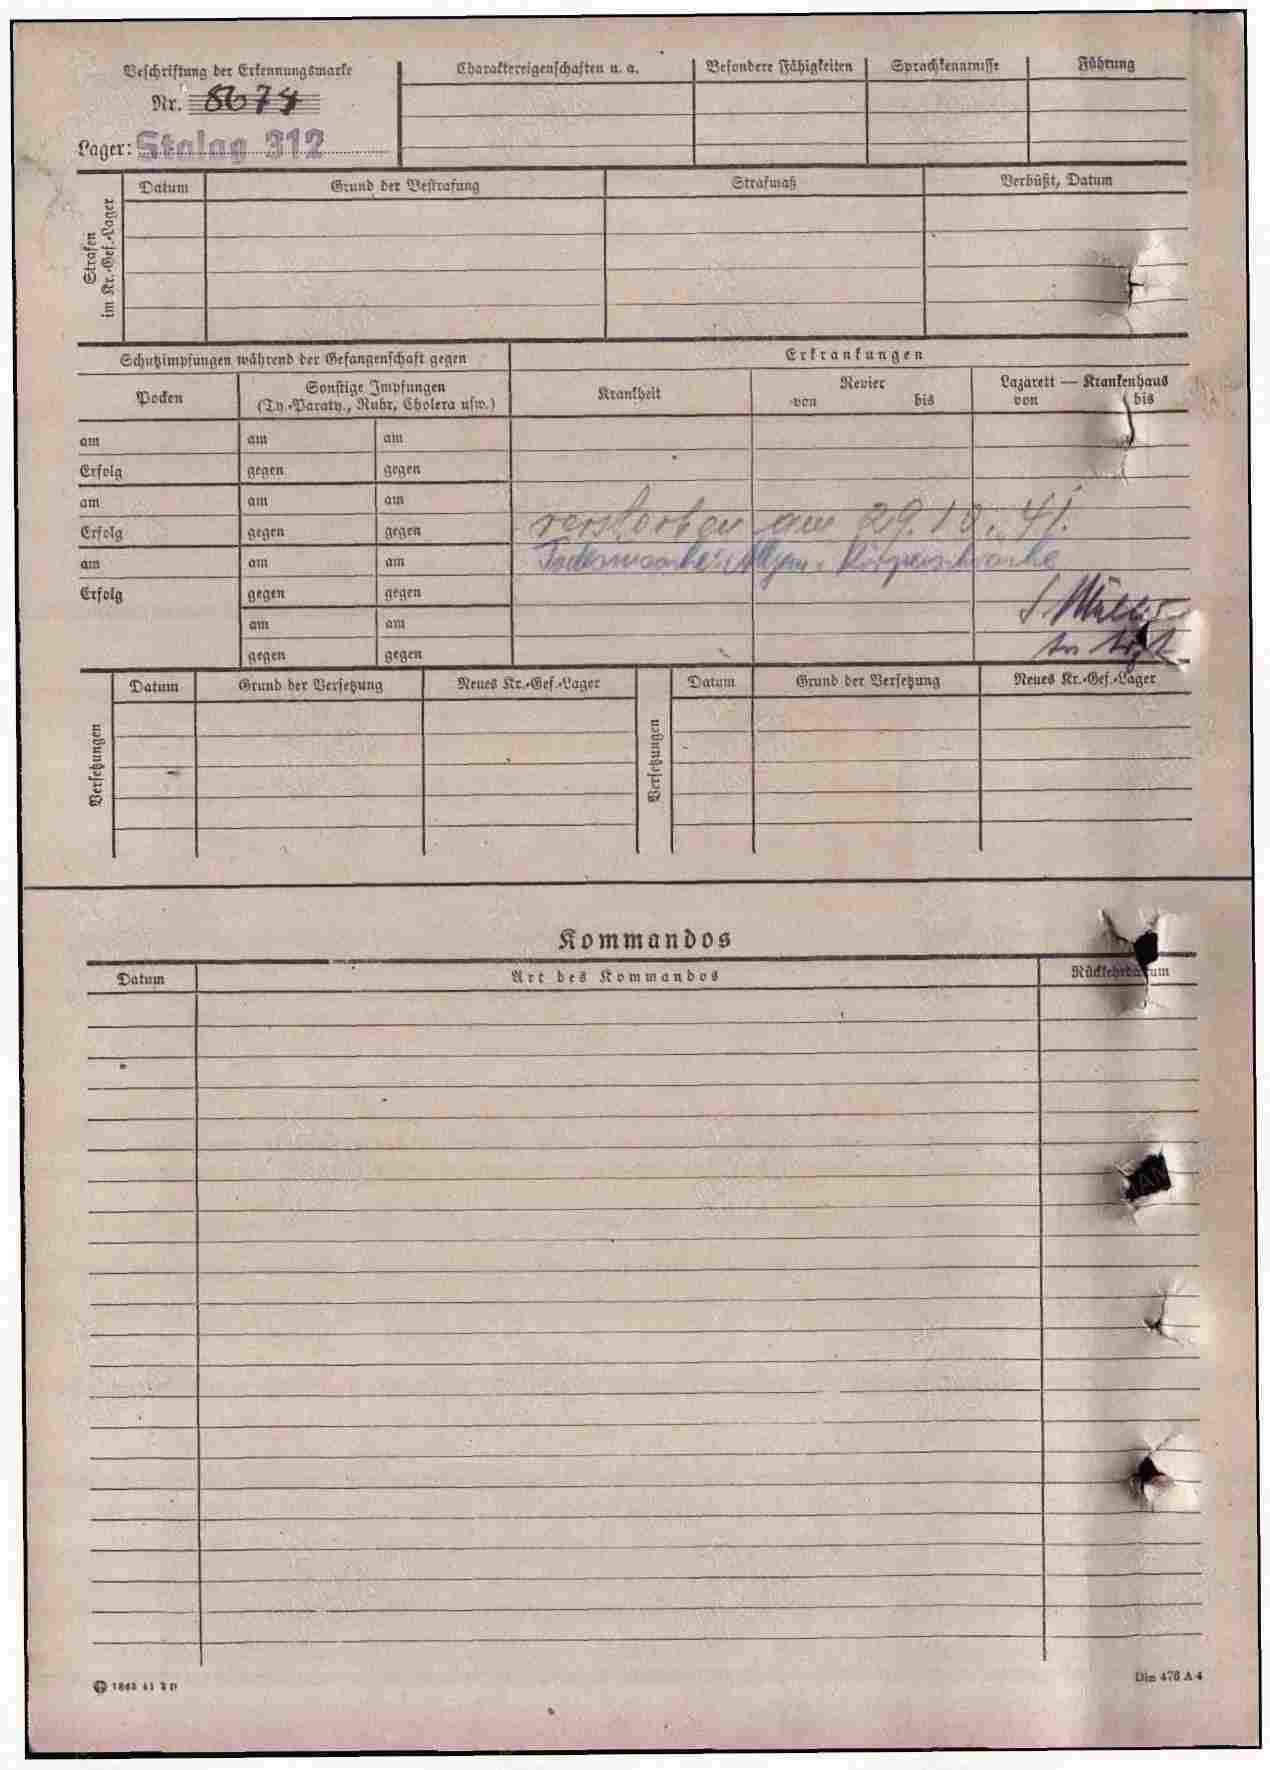 Beschriftung der Erkennungsmarke
Nr. 8674
Lager: Stalag 312
Charaktereigenschaften u. a.
Besondere Fähigkeiten
Sprachkenntnisse
Führung
Strafen
im Kr.-Gef.-Lager
Datum
Grund der Bestrafung
Strafmaß
Verbüßt, Datum
Schutzimpfungen während der Gefangenschaft gegen
Erkrankungen
Pocken
Sonstige Impfungen
(Ty.-Paraty., Ruhr, Cholera usw.)
Krankheit
Revier
von bis
Lazarett — Krankenhaus
von bis
am am am
Erfolg gegen gegen
am am am
Erfolg gegen gegen
verstorben am 29.10.41.
am am am
Todesursache: Allgem. Körperschwäche
Erfolg gegen gegen
am am
gegen gegen
Versetzungen
Datum
Grund der Versetzung
Neues Kr.-Gef.-Lager
Versetzungen
Datum
Grund der Versetzung
Neues Kr.-Gef.-Lager
Kommandos
Datum
Art des Kommandos
Rückkehrdatum
Din 476 A 4